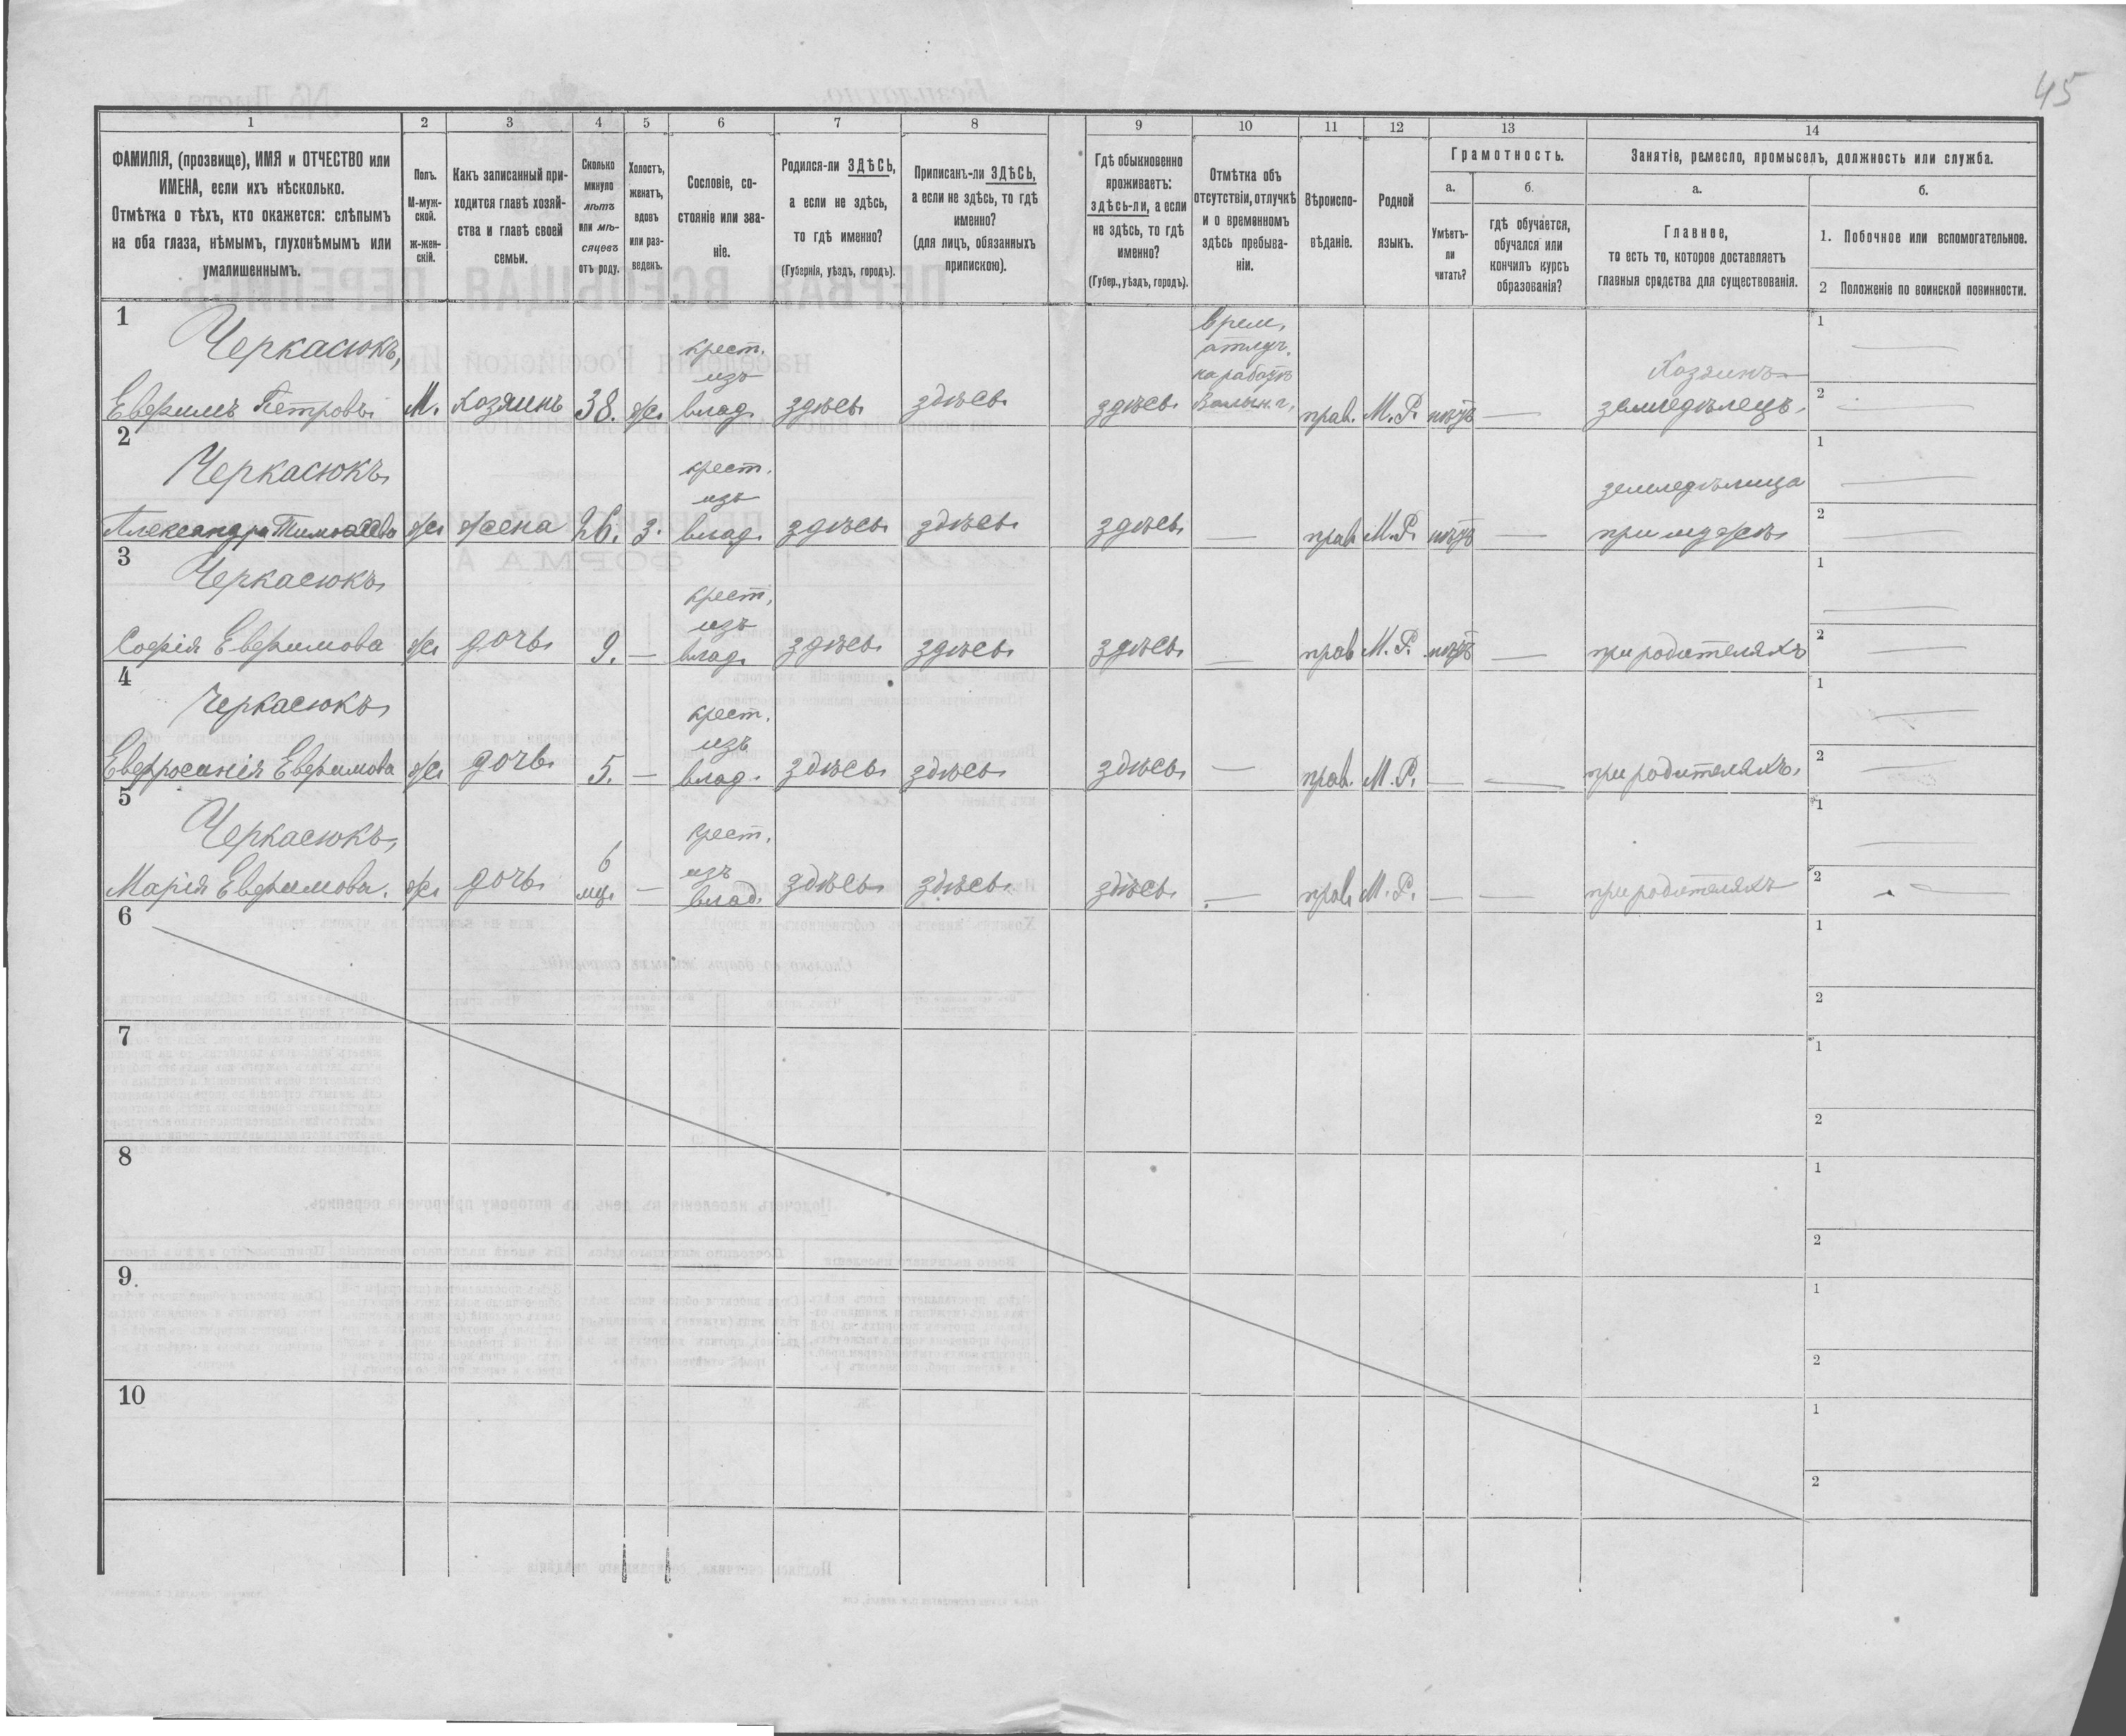 45
1 2 3 4 5 6 7 8 9 10 11 12 13 14
ФАМИЛІЯ, (прозвище), ИМЯ и ОТЧЕСТВО или
ИМЕНА, если ихъ нѣсколько.
Отмѣтка о тѣхъ, кто окажется: слѣпымъ
на оба глаза, нѣмымъ, глухонѣмымъ или
умалишеннымъ.
Полъ.
М-муж-
ской.
ж-жен-
скій.
Какъ записанный при-
ходится главѣ хозяй-
ства и главѣ своей
семьи.
Сколько
минуло
лѣтъ
или мѣ-
сяцевъ
отъ роду.
Холостъ,
женатъ,
вдовъ
или раз-
веденъ.
Сословіе, со-
стояніе или зва-
ніе.
Родился-ли ЗДѢСЬ,
а если не здѣсь,
то гдѣ именно?
(Губернія, уѣздъ, городъ).
Приписанъ-ли ЗДѢСЬ,
а если не здѣсь, то гдѣ
именно?
(для лицъ, обязанныхъ
припискою).
Гдѣ обыкновенно
проживаетъ:
здѣсь-ли, а если
не здѣсь, то гдѣ
именно?
(Губер., уѣздъ, городъ).
Отмѣтка объ
отсутствіи, отлучкѣ
и о временномъ
здѣсь пребыва-
ніи.
Вѣроиспо-
вѣданіе.
Родной
языкъ.
Грамотность.
а.
Умѣетъ-
ли
читать?
б.
гдѣ обучается,
обучался или
кончилъ курсъ
образованія?
Занятіе, ремесло, промыселъ, должность или служба.
а.
Главное,
то есть то, которое доставляетъ
главныя средства для существованія.
б.
1. Побочное или вспомогательное.
2 Положеніе по воинской повинности.
1
Черкасюкъ, крест. врем. 1
изъ отлуч. Хозяинъ
на работѣ
Евфимъ Петровъ М. хозяинъ 38. ж. влад. здѣсь здѣсь здѣсь Волын. г. прав. М. Р. нѣтъ — земледѣлецъ. 2
2
Черкасюкъ крест. 1
изъ земледѣлица
Александра ж. жена 26. з. влад. здѣсь здѣсь здѣсь — прав. М. Р. нѣтъ — при мужѣ 2
3
Черкасюкъ крест. 1
изъ
Софія Евфимова ж. дочь 9. — влад. здѣсь здѣсь здѣсь — прав М. Р. нѣтъ — при родителяхъ 2
4
Черкасюкъ крест. 1
изъ
Евфросинія Евфимова ж. дочь 5. — влад. здѣсь здѣсь здѣсь — прав. М. Р. — — при родителяхъ. 2
5
Черкасюкъ, крест. 1
6 изъ
Марія Евфимова. ж. дочь мц. — влад. здѣсь здѣсь здѣсь — прав. М. Р. — — при родителяхъ 2
6 1
2
7 1
2
8 1
2
9. 1
2
10 1
2